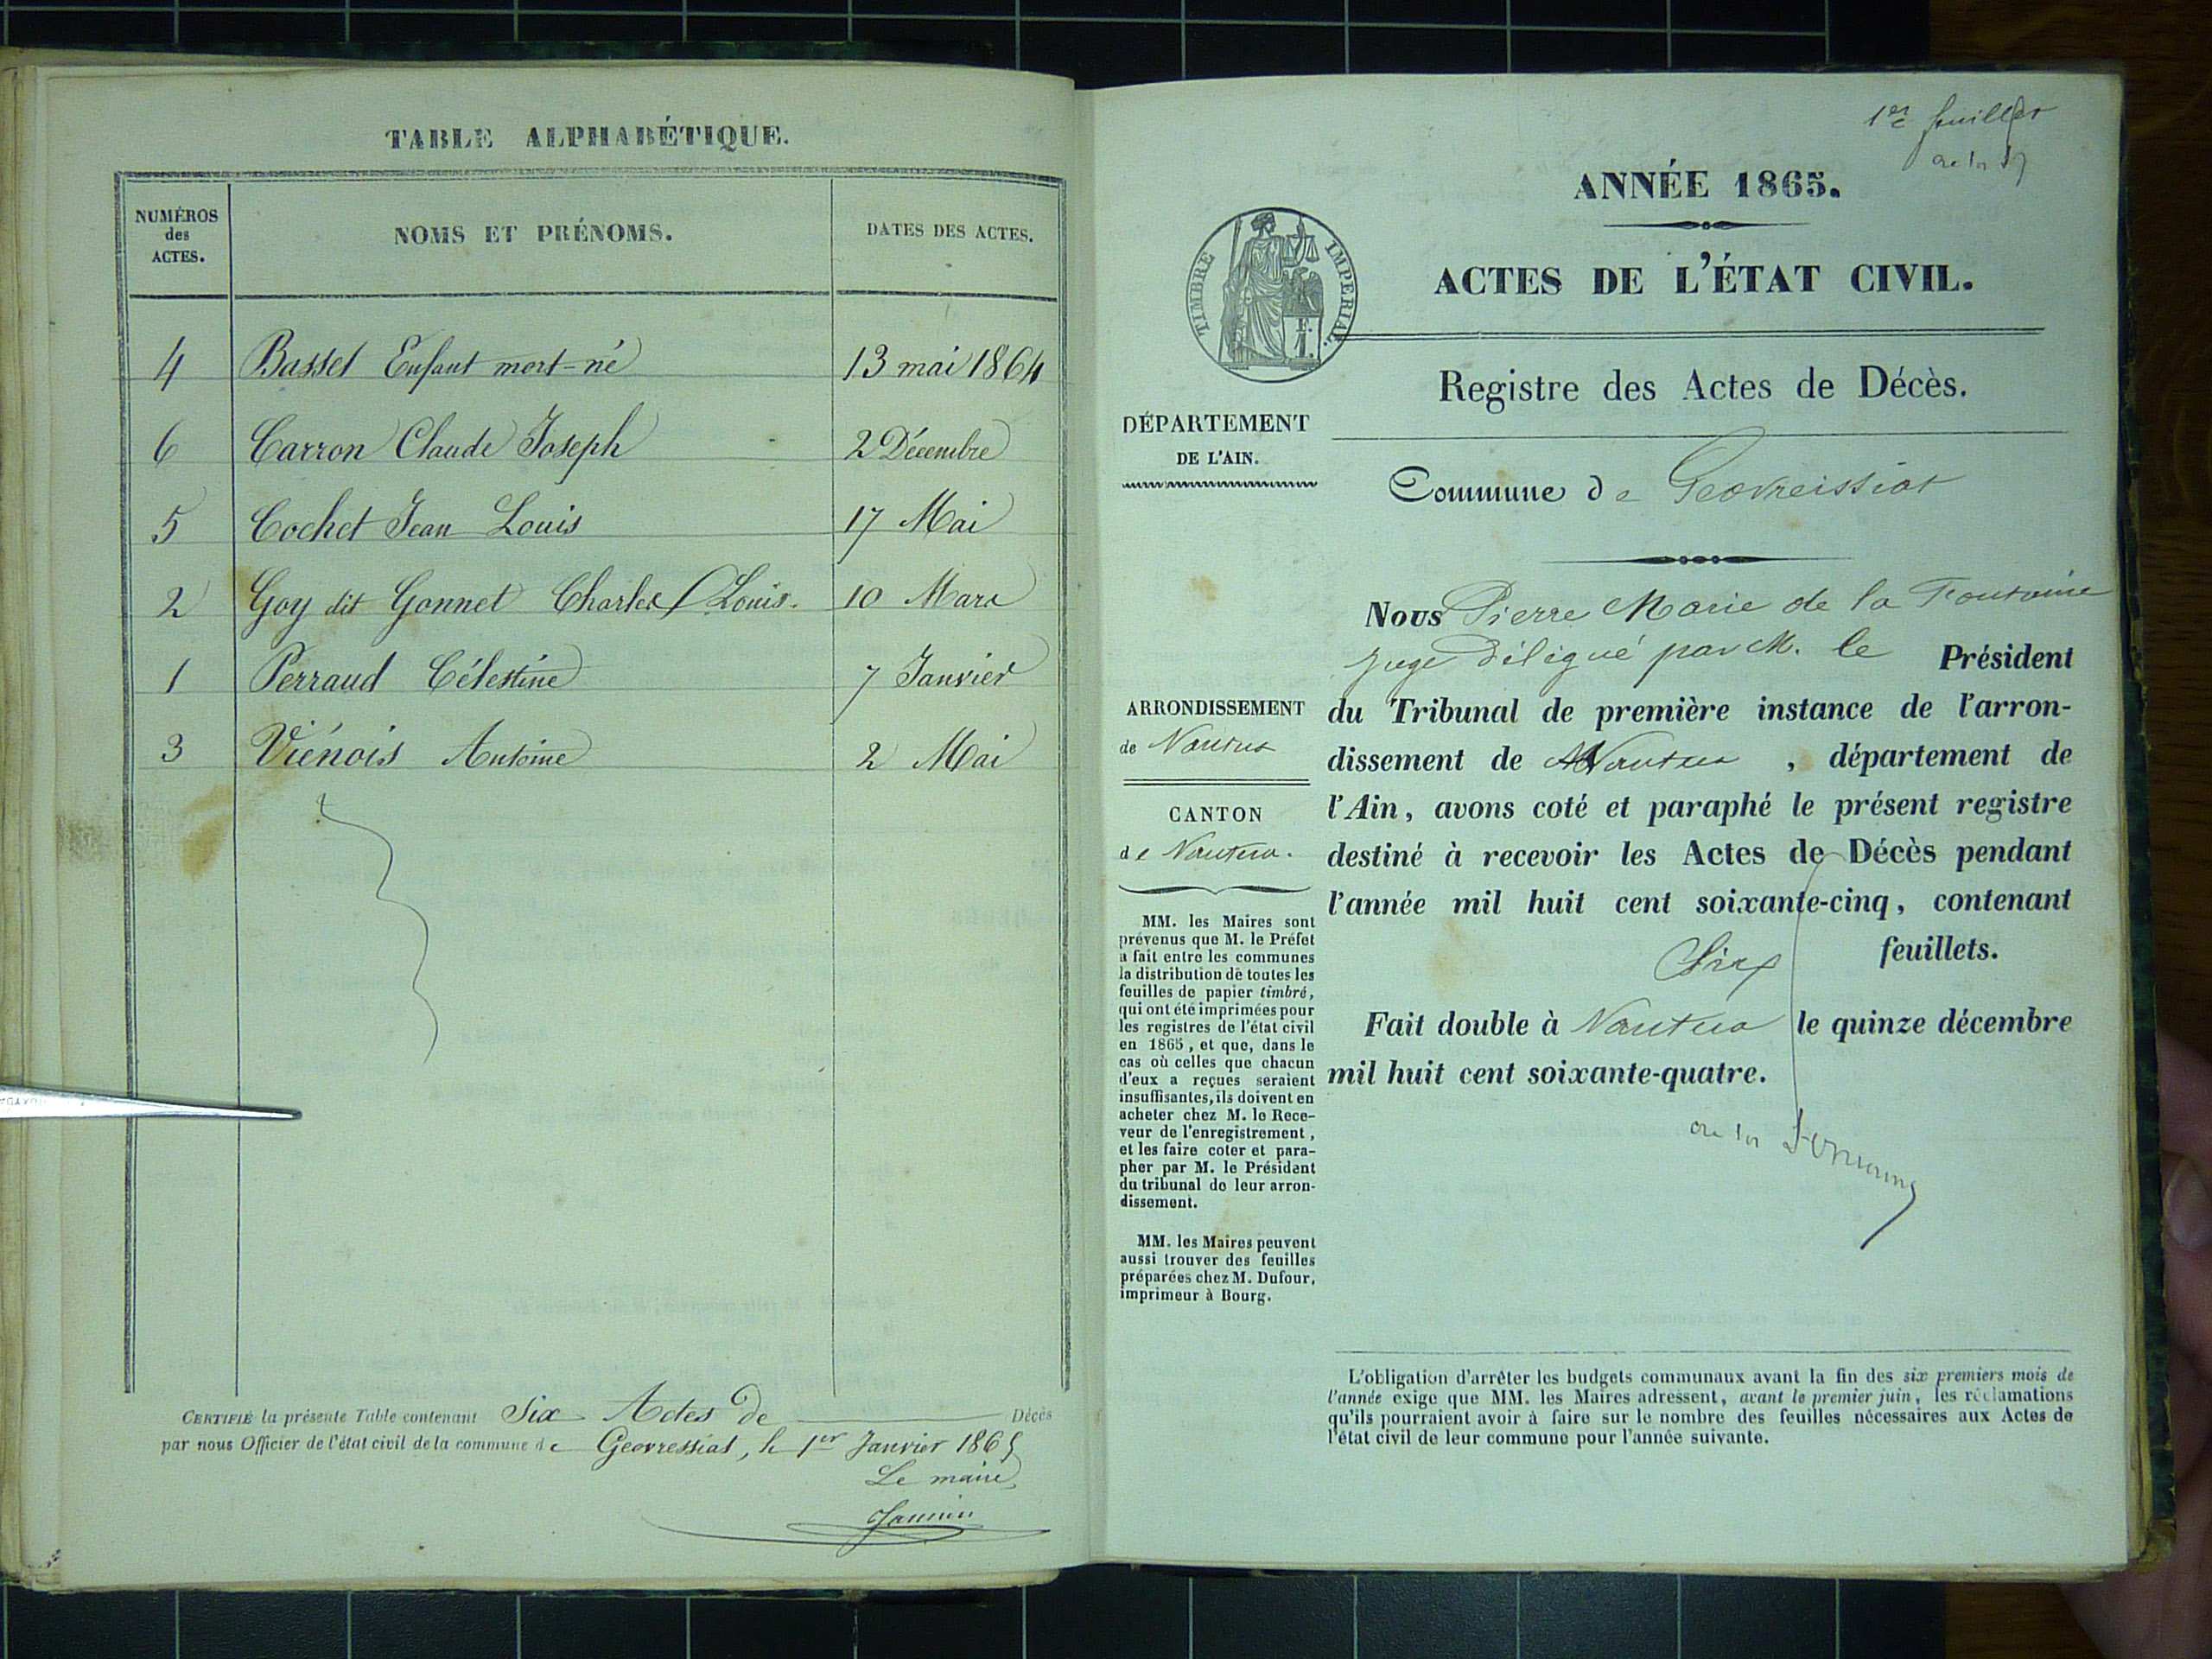 TABLE ALPHABÉTIQUE.
NUMÉROS
des
ACTES.
NOMS ET PRÉNOMS.
DATES DES ACTES.
4 Basset Enfant mort-né 13 mai 1864
6 Carron Claude Joseph 2 Décembre
5 Cochet Jean Louis 17 Mai
2 Goy dit Gonnet Charles Louis. 10 Mars
1 Perraud Célestine 7 Janvier
3 Viénois Antoine 2 Mai
CERTIFIÉ la présente Table contenant Six Actes de Décès
par nous Officier de l'état civil de la commune de Geovressiat, le 1er Janvier 1865
Le maire
1er feuillet
ANNÉE 1865.
ACTES DE L'ÉTAT CIVIL.
TIMBRE IMPÉRIAL.
Registre des Actes de Décès.
DÉPARTEMENT
DE L'AIN.
Commune de Geovreissiat
Nous Pierre Marie de la Fontaine
Juge délégué par M. le Président
du Tribunal de première instance de l'arron-
dissement de Nantua, département de
l'Ain, avons coté et paraphé le présent registre
destiné à recevoir les Actes de Décès pendant
l'année mil huit cent soixante-cinq, contenant
Six feuillets.
Fait double à Nantua le quinze décembre
mil huit cent soixante-quatre.
ARRONDISSEMENT
de Nantua
CANTON
de Nantua.
MM. les Maires sont
prévenus que M. le Préfet
a fait entre les communes
la distribution de toutes les
feuilles de papier timbré,
qui ont été imprimées pour
les registres de l'état civil
en 1865, et que, dans le
cas où celles que chacun
d'eux a reçues seraient
insuffisantes, ils doivent en
acheter chez M. le Rece-
veur de l'enregistrement,
et les faire coter et para-
pher par M. le Président
du tribunal de leur arron-
dissement.
MM. les Maires peuvent
aussi trouver des feuilles
préparées chez M. Dufour,
imprimeur à Bourg.
L'obligation d'arrêter les budgets communaux avant la fin des six premiers mois de
l'année exige que MM. les Maires adressent, avant le premier juin, les réclamations
qu'ils pourraient avoir à faire sur le nombre des feuilles nécessaires aux Actes de
l'état civil de leur commune pour l'année suivante.